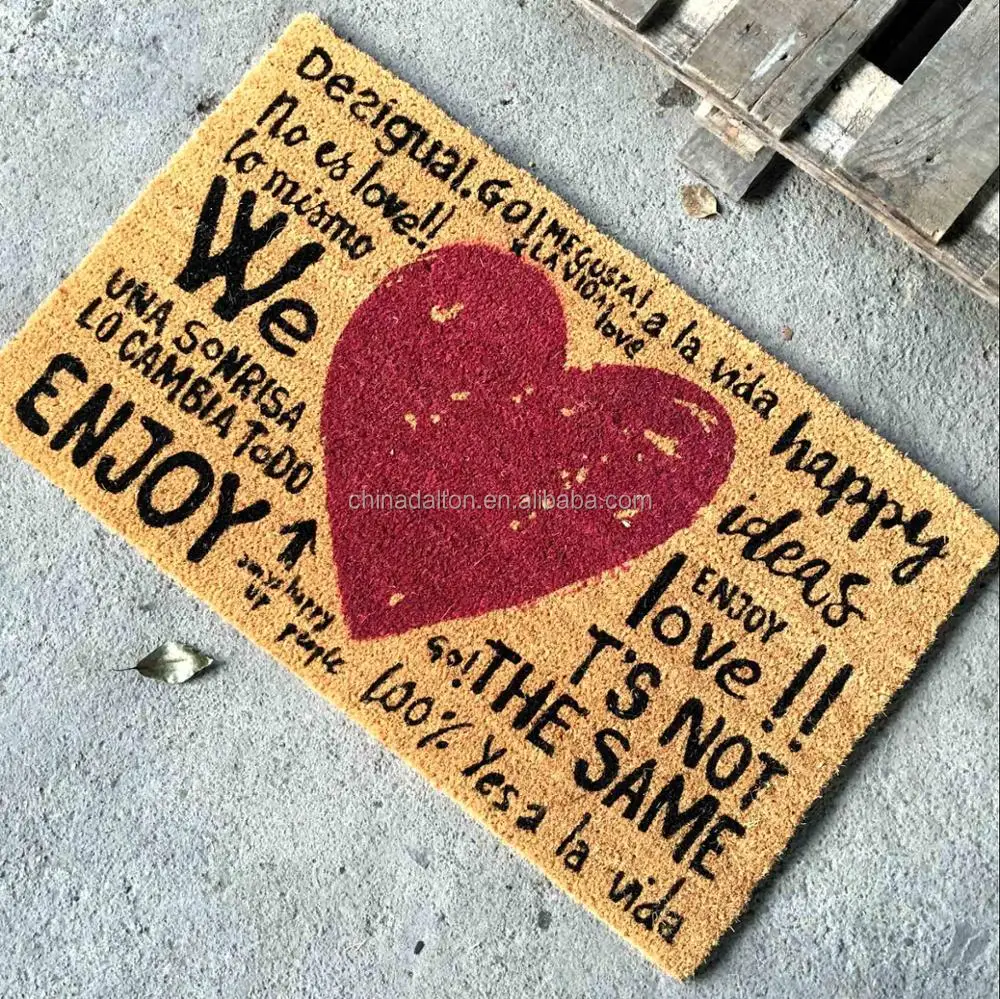 Desigual. GO!
ME GUSTA!
a la vida
happy
no es love!!
lo mismo
We
love
UNA SONRISA
LO CAMBIA TODO
ENJOY
happy
UP
people
chinadalton.en.alibaba.com
ideas
ENJOY
love!!
T'S NOT
Go! THE SAME
100% Yes a la vida